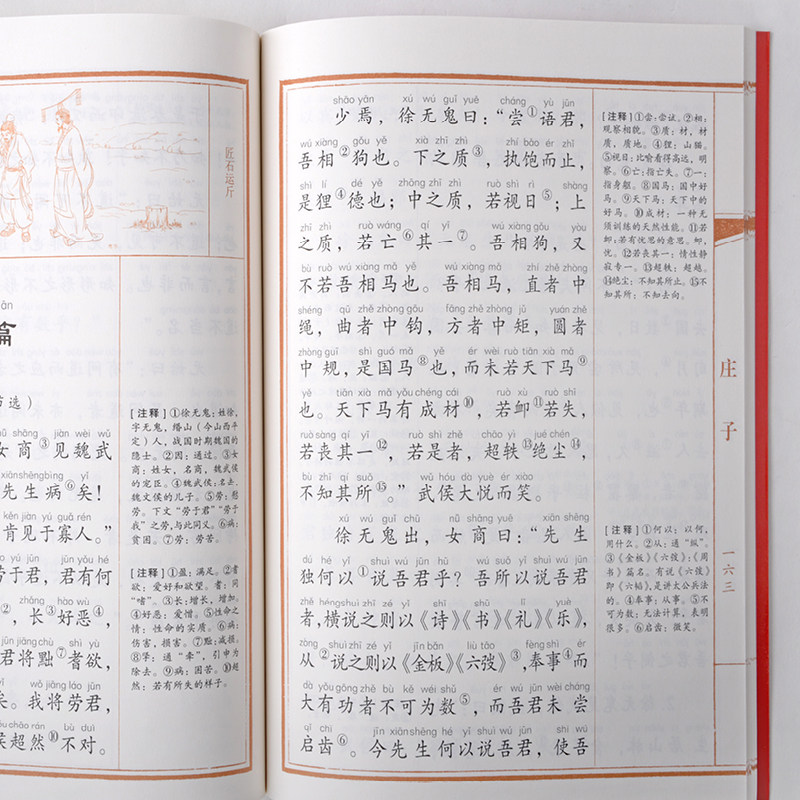 匠石运斤
篇
选）
女商③见魏武
xiān shēng bìng yǐ
先生病⑥矣！
kěn jiàn yú guǎ rén
肯见于寡人。”
劳于君，君有何
②，长③好恶④，
君将黜⑦耆欲，
wǒ jiāng láo jūn
矣。我将劳君，
侯超然⑩不对。
[注释]①徐无鬼：姓徐，
字无鬼，缗山（今山西平
定）人，战国时期魏国的
隐士。②因：通过。③女
商：姓女，名商，魏武侯
的宠臣。④魏武侯：名击，
魏文侯的儿子。⑤劳：慰
劳。下文“劳于君”“劳于
我”之劳，与此同义。⑥病：
贫困。⑦劳：劳苦。
[注释]①盈：满足。②耆
欲：爱好和欲望。耆：同
“嗜”。③长：增长，增加。
④好恶：爱憎。⑤性命之
情：性命的实质。⑥病：
伤害，损害。⑦黜：减损。
⑧掔：通“牵”，引申为
除去。⑨病：困苦。⑩超
然：若有所失的样子。
shǎo yān xú wú guǐ yuē cháng yù jūn
少焉，徐无鬼曰：“尝①语君，
wú xiàng gǒu yě xià zhī zhì zhí bǎo ér zhǐ
吾相②狗也。下之质③，执饱而止，
shì lí dé yě zhōng zhī zhì ruò shì rì shàng
是狸④德也；中之质，若视日⑤；上
zhī zhì ruò wáng qí yī wú xiàng gǒu yòu
之质，若亡⑥其一⑦。吾相狗，又
bù ruò wú xiàng mǎ yě wú xiàng mǎ zhí zhě zhòng
不若吾相马也。吾相马，直者中
shéng qū zhě zhòng gōu fāng zhě zhòng jǔ yuán zhě
绳，曲者中钩，方者中矩，圆者
zhòng guī shì guó mǎ yě ér wèi ruò tiān xià mǎ
中规，是国马⑧也，而未若天下马⑨
yě tiān xià mǎ yǒu chéng cái ruò xù ruò shī
也。天下马有成材⑩，若卹⑪若失，
ruò sàng qí yī ruò shì zhě chāo yì jué chén
若丧其一⑫，若是者，超轶⑬绝尘⑭，
bù zhī qí suǒ wǔ hóu dà yuè ér xiào
不知其所⑮。”武侯大悦而笑。
xú wú guǐ chū nǚ shāng yuē xiān shēng
徐无鬼出，女商曰：“先生
dú hé yǐ shuì wú jūn hū wú suǒ yǐ shuì wú jūn
独何以①说吾君乎？吾所以说吾君
zhě héng shuì zhī zé yǐ shī shū lǐ yuè
者，横说之则以《诗》《书》《礼》《乐》，
zòng shuì zhī zé yǐ jīn bǎn liù tāo fèng shì ér
从②说之则以《金板》《六弢》③，奉事④而
dà yǒu gōng zhě bù kě wéi shǔ ér wú jūn wèi cháng
大有功者不可为数⑤，而吾君未尝
qǐ chǐ jīn xiān shēng hé yǐ shuì wú jūn shǐ wú
启齿⑥。今先生何以说吾君，使吾
[注释]①尝：尝试。②相：
观察相貌。③质：材，材
质，质地。④狸：山猫。
⑤视日：比喻看得高远，明
察。⑥亡：指亡失。⑦一：
指身躯。⑧国马：国中好
马。⑨天下马：天下中
的好马。⑩成材：一种无
须训练的天然性能。⑪若
卹：若有忧思的意思。卹，
忧。⑫若丧其一：情性静
寂专一。⑬超轶：超越。
⑭绝尘：不知其所止。⑮不
知其所：不知去向。
[注释]①何以：以何，
用什么。②从：通“纵”。
③《金板》《六弢》：《周
书》篇名。有说《六弢》
即《六韬》，是讲太公兵法
的。④奉事：从事。⑤不
可为数：无法计算，表明
很多。⑥启齿：微笑。
庄子
一六三